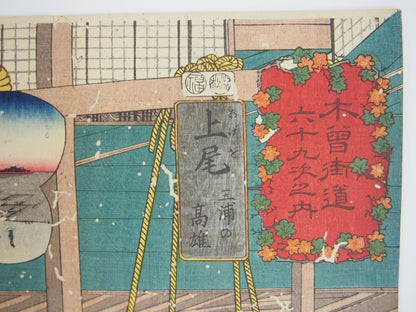 木曾街道
六十九次之内
上尾
あげを
三浦の
高雄